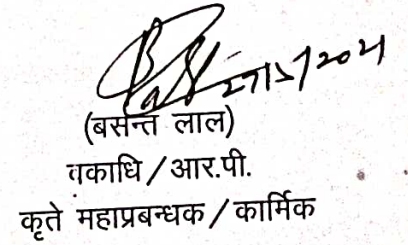 27/5/2021
(बसन्त लाल)
वकाधि / आर.पी.
कृते महाप्रबन्धक / कार्मिक